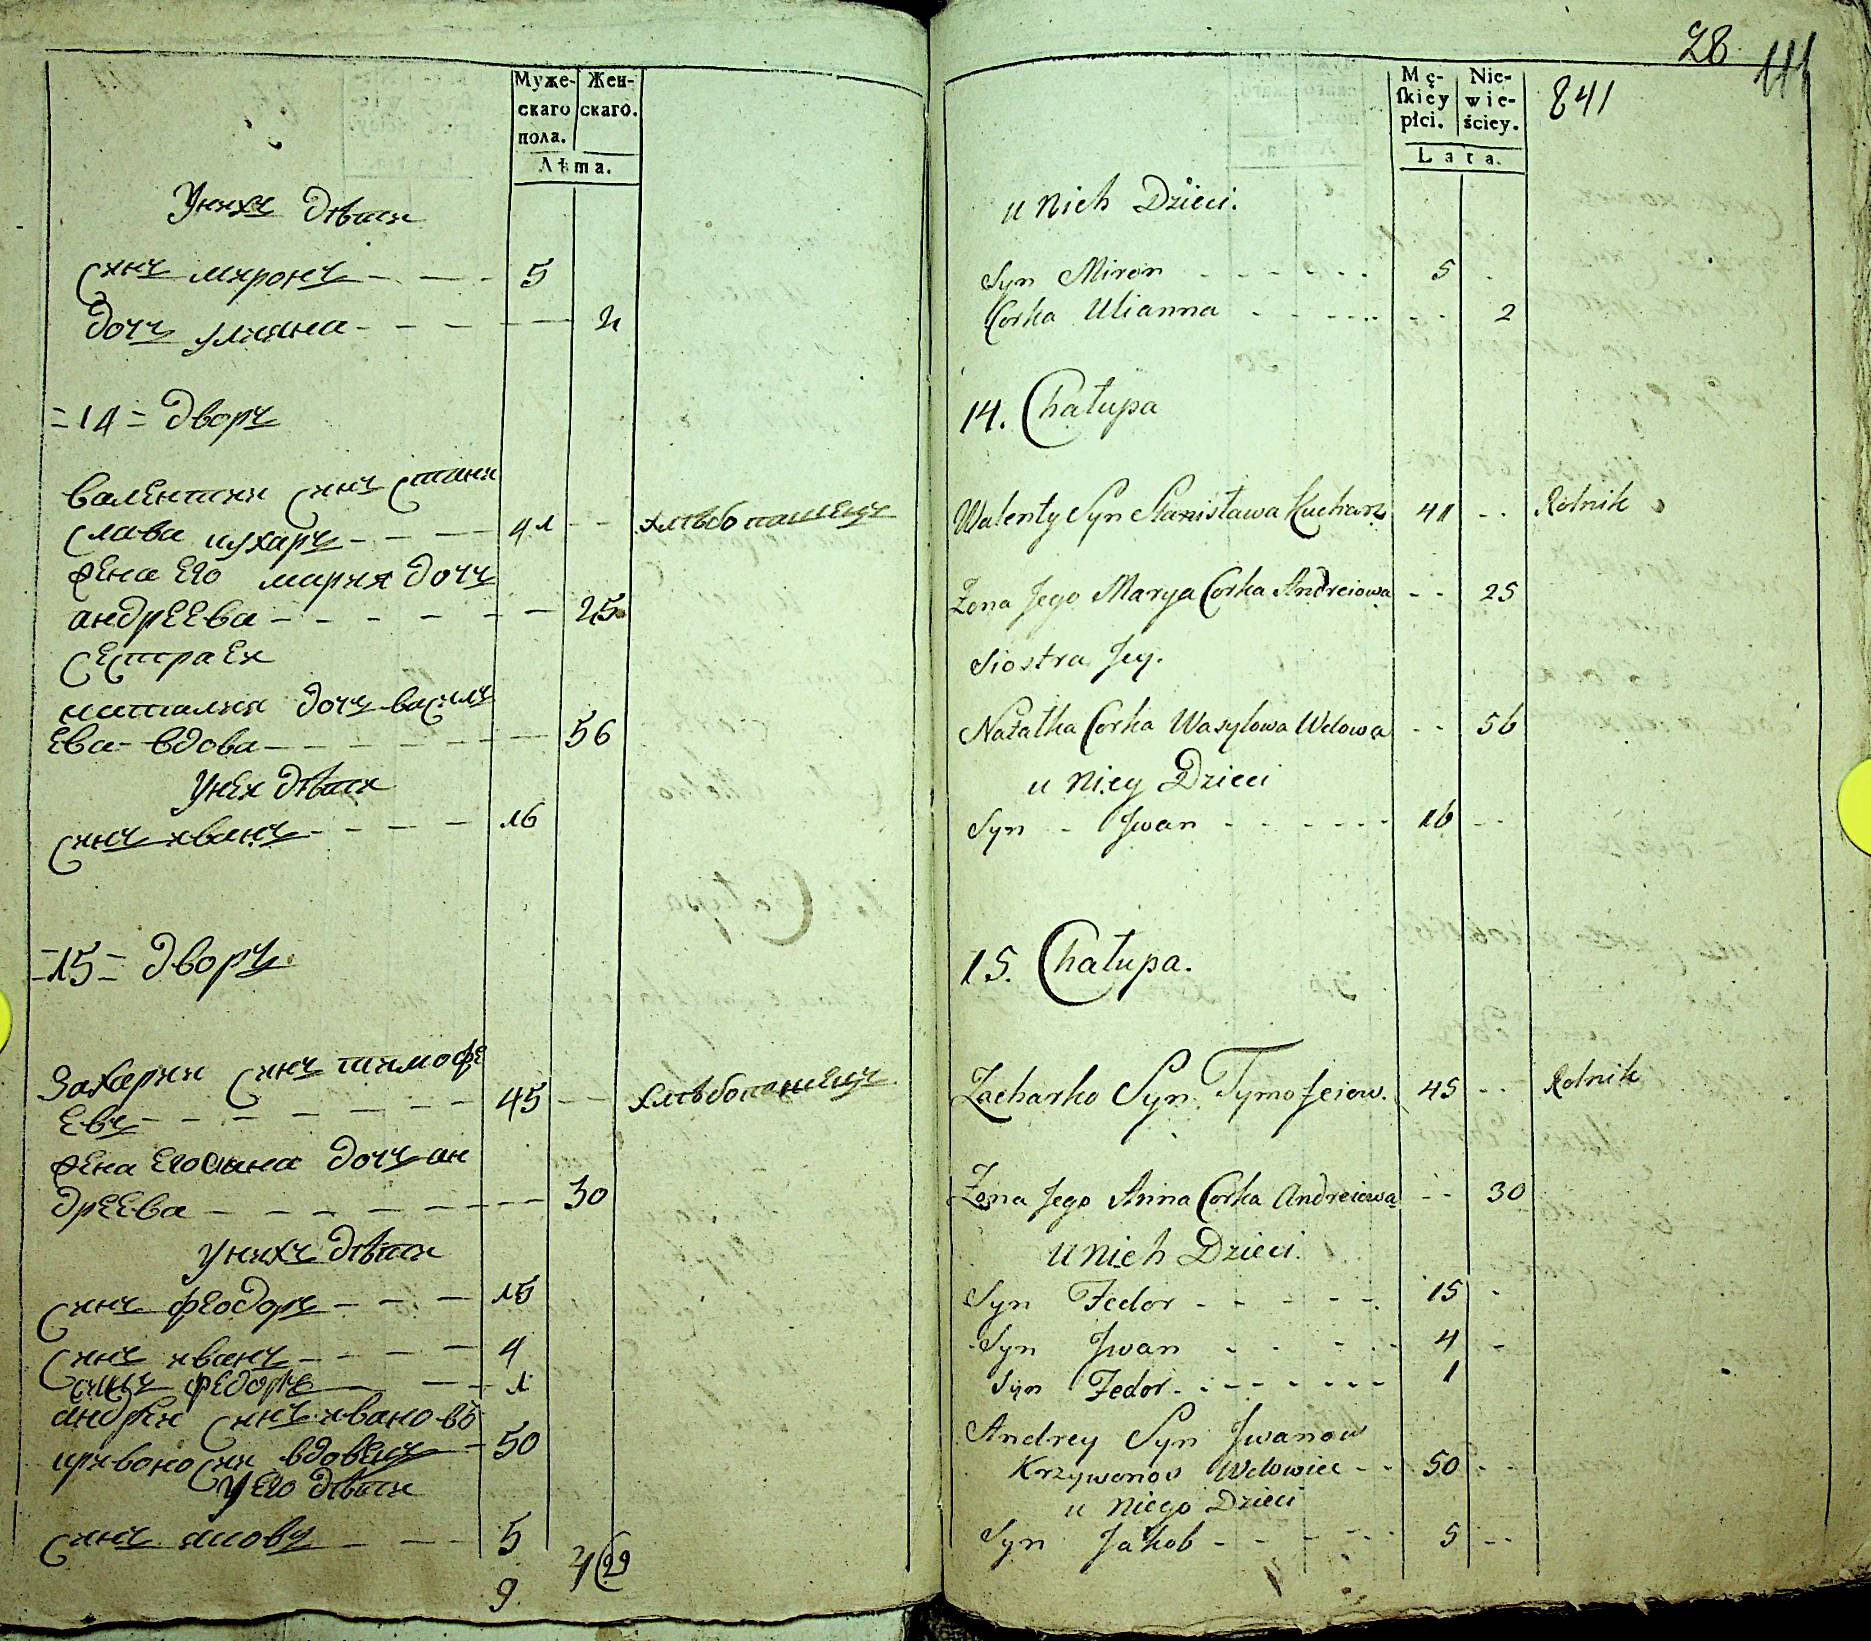 Муже- Жен-
скаго скаго.
пола.
Лѣта.
Унихъ Дѣти
Синъ миронъ 5
Дочъ улияна 2
=14= Дворъ
валентии Синъ Стани
Слава кухаръ 41 хлѣбопашецъ
жена его мария Дочъ
андреева 25
Сестра ей
наталия Дочъ василь
ева вдова 56
Унеи Дѣти
Синъ иванъ 16
=15= Дворъ
Захарии Синъ тимофе
евъ 45 хлѣбопашецъ
жена его анна Дочъ ан
дреева 30
Унихъ Дѣти
Синъ феодоръ 15
Синъ иванъ 4
Синъ федоръ 1
андрей Синъ ивановъ
кривоносии вдовецъ 50
У его Дѣти
Синъ яковъ 5
9 4 29
28
841
Mę- Nie-
ſkiey wie-
płci. ściey.
Lata.
u Nich Dzieci.
Syn Miron 5
Corka Ulianna 2
14. Chałupa
Walenty Syn Stanisława Kucharz 41 Rolnik
Żona Jego Marya Corka Andreiowa 25
Siostra Jey.
Natałka Corka Wasylowa Wdowa 56
u Niey Dzieci
Syn Jwan 16
15. Chałupa.
Zacharko Syn Tymofeiow. 45 Rolnik
Żona Jego Anna Corka Andreiowa 30
u Nich Dzieci.
Syn Fedor 15
Syn Jwan 4
Syn Fedor 1
Andrey Syn Jwanow
Krzywonos Wdowiec 50
u Niego Dzieci
Syn Jakob 5